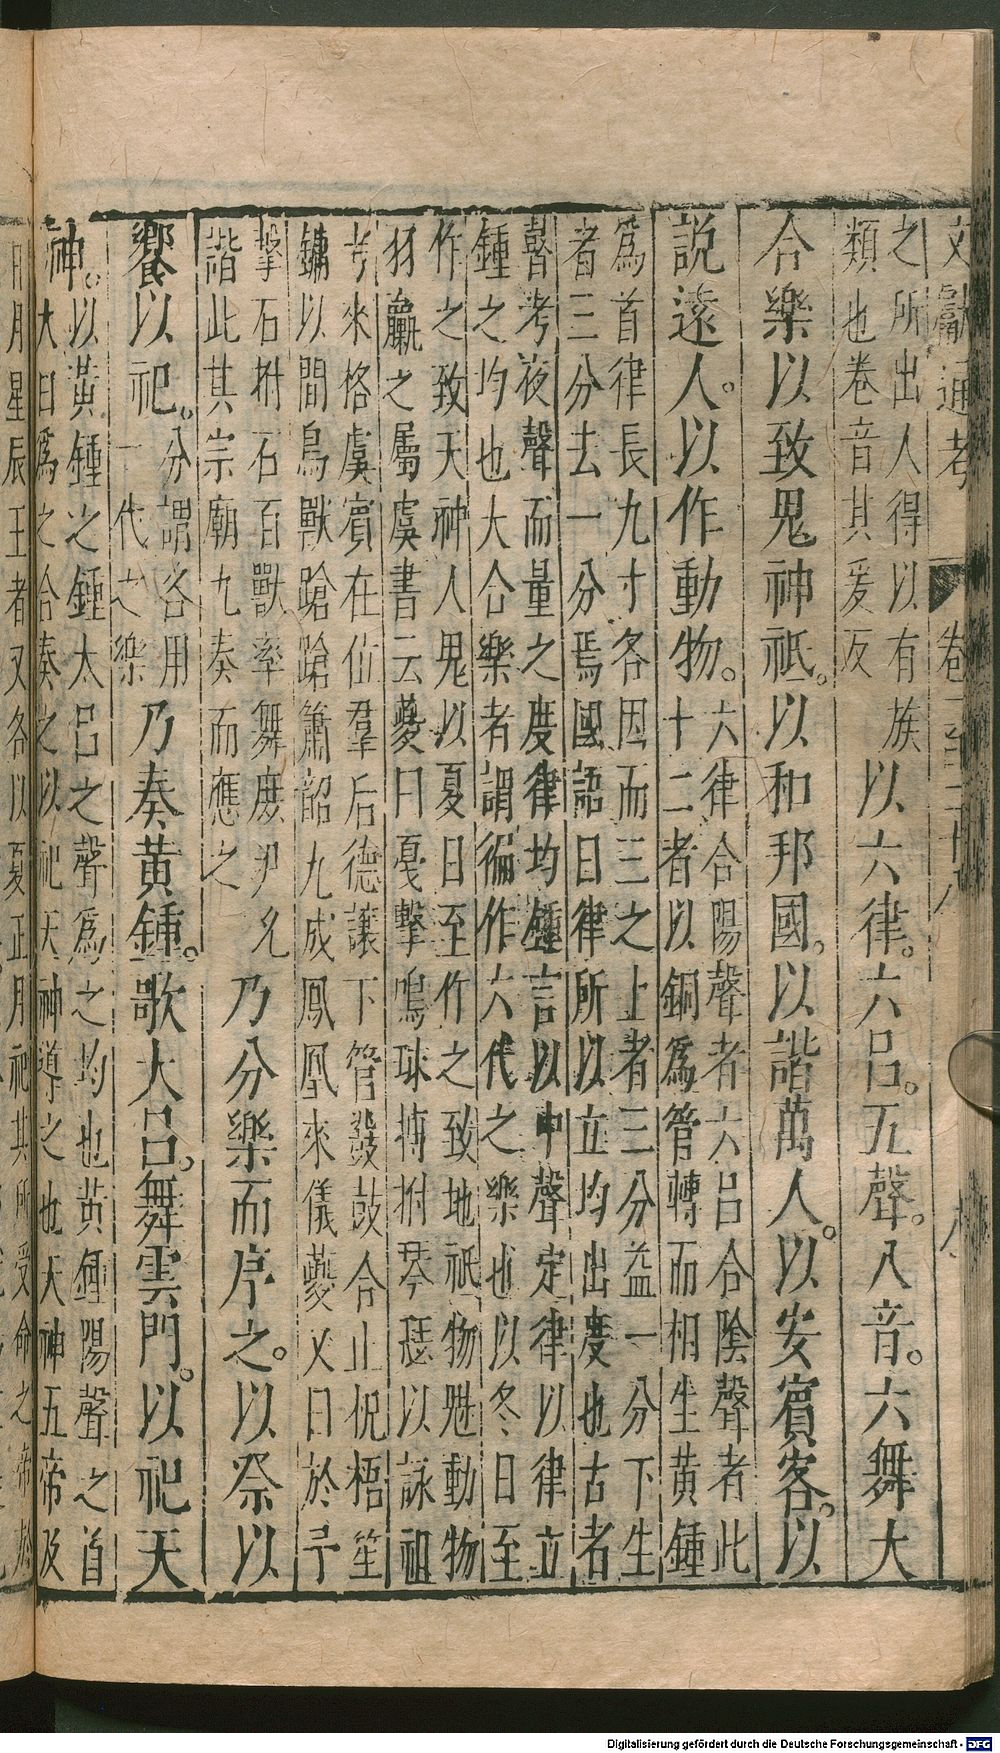 文獻通考 卷一百二十八
之所出人得以有族
類也卷音其爰反
以六律。六呂。五聲。八音。六舞大
合樂以致鬼神祗。以和邦國。以諧萬人。以安賓客。以
說遠人。以作動物。
六律合陽聲者六呂合陰聲者此
十二者以銅爲管轉而相生黄鍾
爲首律長九寸各因而三之上者三分益一分下生
者三分去一分焉國語曰律所以立均出度也古者
瞽考夜聲而量之度律均鍾言以中聲定律以律立
鍾之均也大合樂者謂徧作六代之樂也以冬日至
作之致天神人鬼以夏日至作之致地祗物魅動物
羽臝之屬虞書云夔曰戞擊鳴球搏拊琴瑟以詠祖
考來格虞賓在位羣后德讓下管鼗鼓合止柷梧笙
鏞以間鳥獸蹌蹌簫韶九成鳳凰來儀夔又曰於予
擊石拊石百獸率舞庶尹允
諧此其宗廟九奏而應之
乃分樂而序之。以祭以
饗以祀。
分謂各用
一代之樂
乃奏黄鍾。歌大呂。舞雲門。以祀天
神。
以黄鍾之鍾太呂之聲爲之均也黄鍾陽聲之首
大曰爲之合奏之以祀天神導之也天神五帝及
日月星辰王者又各以夏正月祀其所受命之帝於
Digitalisierung gefördert durch die Deutsche Forschungsgemeinschaft - DFG